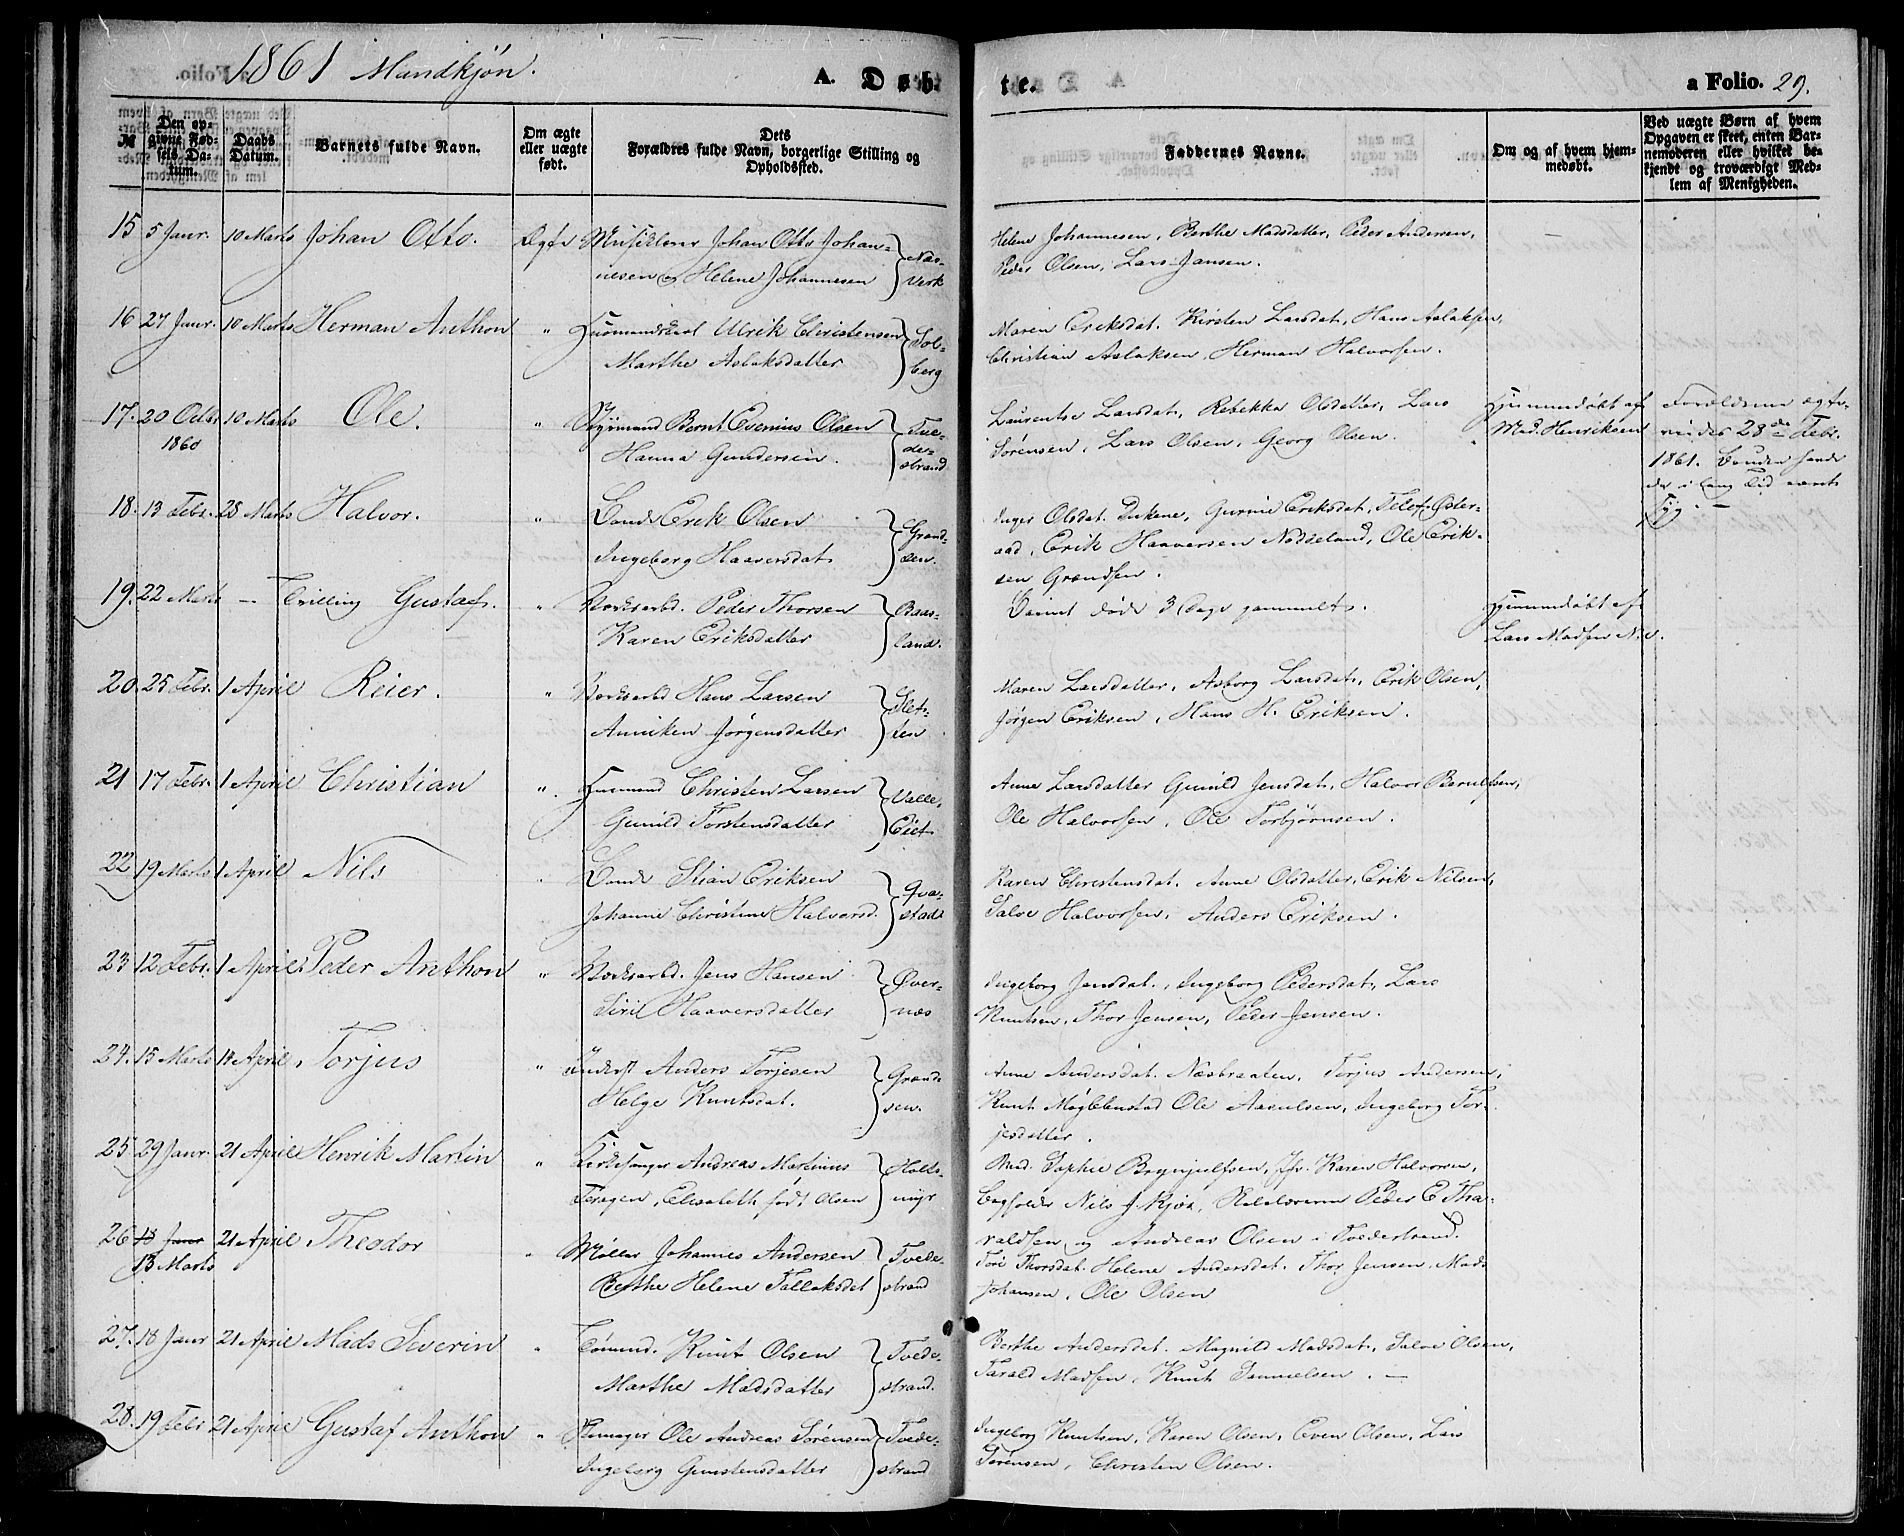 1861 Mandkjøn. A. Døb
te. a Folio. 29.
№ Den opgivne Fødsels Datum. Daabs Datum. Barnets fulde Navn. Om ægte eller uægte født. Dets Forældres fulde Navn, borgerlige Stilling og Opholdssted.
Faddernes Navne. Om og af hvem hjemmedøbt. Ved uægte Børn af hvem Opgaven er skeet, enten Barnemoderen eller hvilket bekjendt og troværdigt Medlem af Menigheden.
15 5 Janr. 10 Marts Johan Otto. Ægte Johan Otto Johan- Næs-
nesen og Helene Johannesen Verk
Helene Johannesen, Berthe Madsdatter, Peder Andersen, —
Peder Olsen, Lars Jansen.
16 27 Janr. 10 Marts Herman Anthon " Ulrik Christensen Sol-
Marthe Aslaksdatter berg
Maren Eriksdat. Kirsten Larsdat, Hans Aslaksen,
Christian Aslaksen, Herman Halvorsen.
17. 20 Octbr 10 Marts Ole. " Styrmand Bernt Evenius Olsen Tve-
1860 Hanna Gundersen. de-
strand
Laurentse Larsdat, Rebekka Olsdatter, Lars Hjemmedøbt af Forældrene ægte-
Sørensen, Lars Olsen, Georg Olsen. Mad. Henriksen viedes 28de Febr.
1861.
18. 13 Febr. 28 Marts Halvor. " Bonde Erik Olsen Grænd-
Ingeborg Haaversdat. sen.
Inger Olsdat. Gunnie Eriksdat, Tellef Øster-
aad, Erik Haaversen Nodeland, Ole Erik-
sen Grændsen.
19. 22 Marts — Tvilling Gustaf. " Værksarbd. Peder Thorsen Baas-
Karen Eriksdatter land.
Barnet døde 3 Dage gammelt. Hjemmedøbt af
Lars Madsen
20. 25 Febr. 1 April Reier. " Værksarbd Hans Larsen Slet-
Anniken Jørgensdatter
Maren Larsdatter, Asborg Larsdat, Erik Olsen,
Jørgen Eriksen, Hans H. Eriksen.
21 17 Febr. 1 April Christian " Husmand Christen Larsen Valle,
Gunild Torstensdatter Eiet
Anne Larsdatter Gunild Jensdat, Halvor
Ole Halvorsen, Ole Torbjørnsen.
22 19 Marts 1 April Nils " Bonde Stian Eriksen Qva-
Johanne Christine Halvorsd. stad
Karen Christensdat. Anne Olsdatter, Erik Nilsen,
Salve Halvorsen, Anders Eriksen.
23 12 Febr. 1 April Peder Anthon " Værksarbd. Jens Hansen Øver-
Siril Haaversdatter næs
Ingeborg Jensdat., Ingeborg Pedersdat, Lars
Knutsen, Thor Jensen, Peder Jensen.
24. 15 Marts 14 April Torjus " Inderst Anders Torjesen Grænd-
Helge Knutsdat. sen.
Anne Andersdat. Næsbraaten, Torjus Andersen,
Knut Ole Ingeborg Tor-
jesdatter.
25 29 Janr. 21 April Henrik Martin " Kirkesanger Andreas Martinius Holts-
Teragen, Elisabeth født Olsen myr
Mad. Sophie Brynjulfsen, Jfr. Karen Halvorsen,
Nils J. Peder E. Tha-
raldsen og Andreas Olsen i Tvedestrand.
26 13 Janr 21 April Theodor " Møller Johannes Andersen Tvede-
13 Marts Berthe Helene Tallaksdat strand
Tore Thorsdat. Helene Andersdat. Thor Jensen, Mads
Johansen, Ole Olsen
27. 18 Janr 21 April Mads Severin " Tømmd. Knut Olsen Tvede-
Marthe Madsdatter strand.
Berthe Andersdat. Magnild Madsdat, Salve Olsen,
Tarald Madsen, Knut Samuelsen. —
28. 19 Febr 21 April Gustaf Anthon " Ole Andreas Sørensen Tvede-
Ingeborg Gunstensdatter strand
Ingeborg Knutsen, Karen Olsen, Even Olsen, Lars
Sørensen, Christen Olsen.